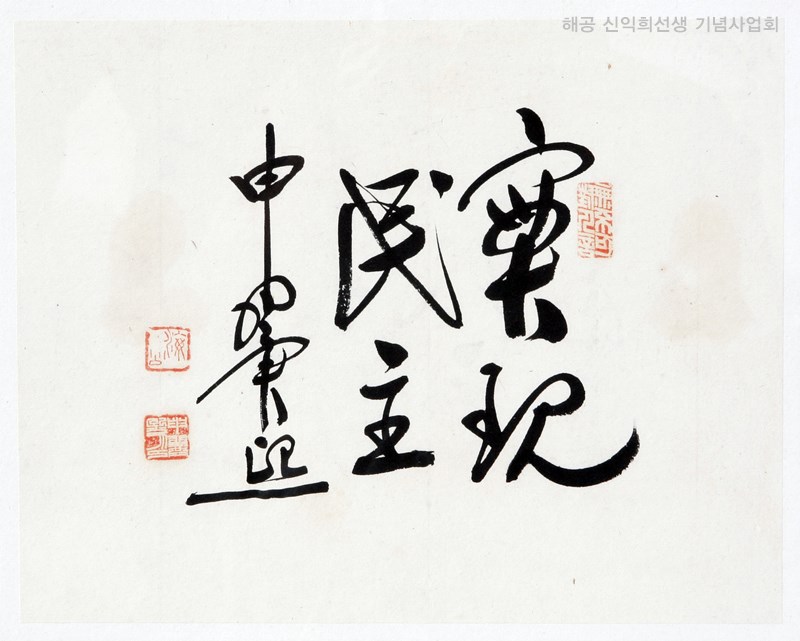 해공 신익희선생 기념사업회
實現
民主
申翼熙
海公